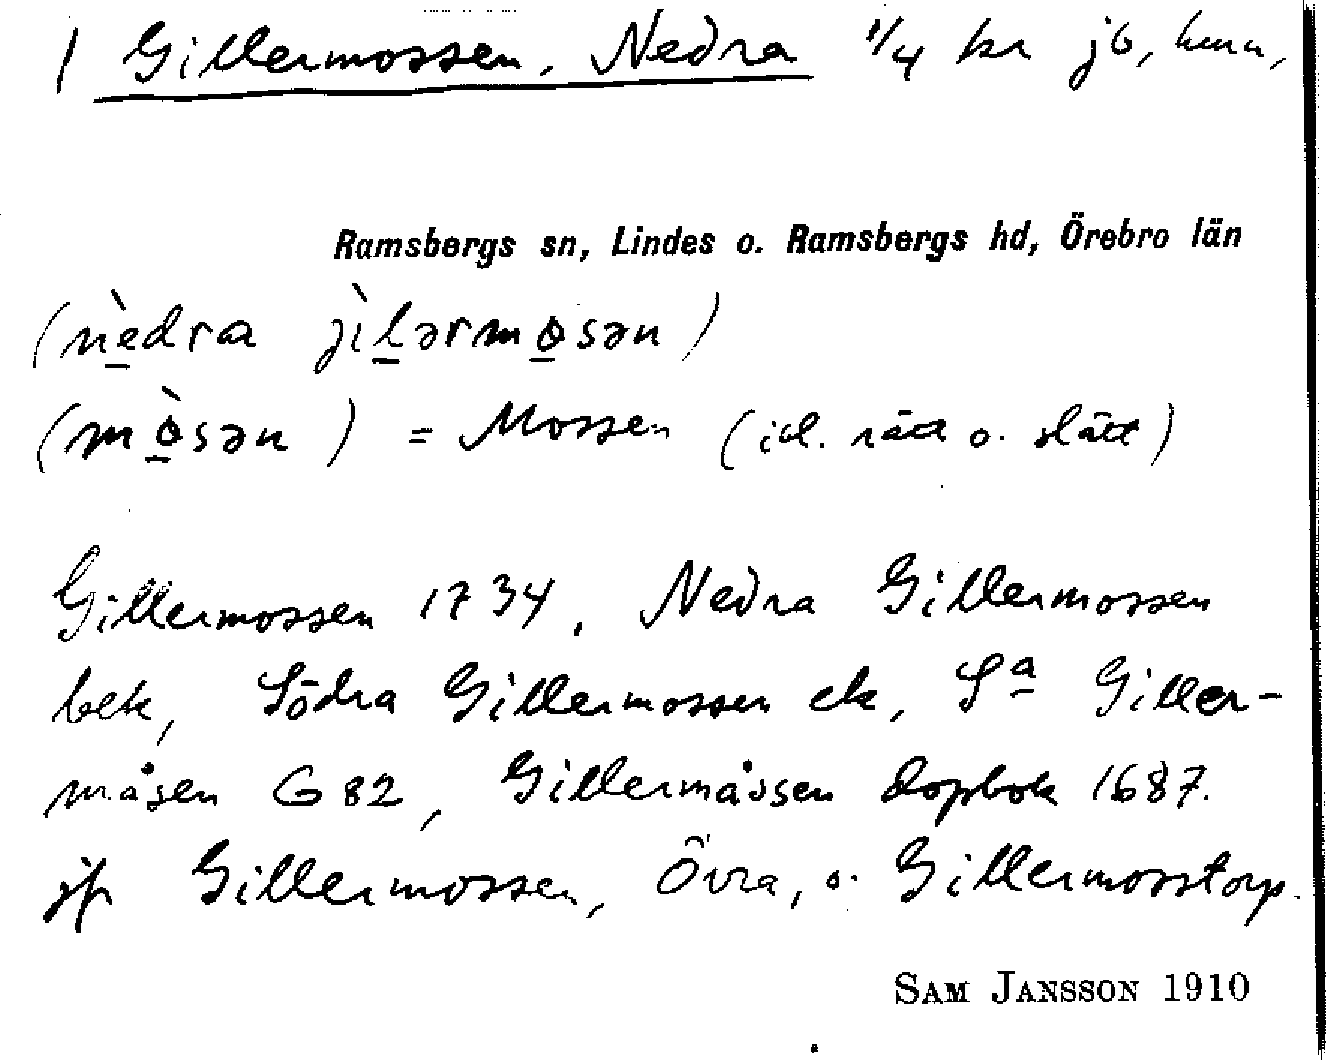 1 Gillermossen, Nedra 1/4 kr jb, hmn,
Ramsbergs sn, Lindes o. Ramsbergs hd, Örebro län
(nèdra jìlərmosən)
(mòsən) = Mossen (icl. rätt o. slätt)
Gillermossen 1734, Nedra Gillermossen
bek, Södra Gillermossen ek, Sa Giller-
måsen G 82, Gillermåssen dopbok 1687.
jfr Gillermossen, Övra, o. Gillermosstorp.
SAM JANSSON 1910